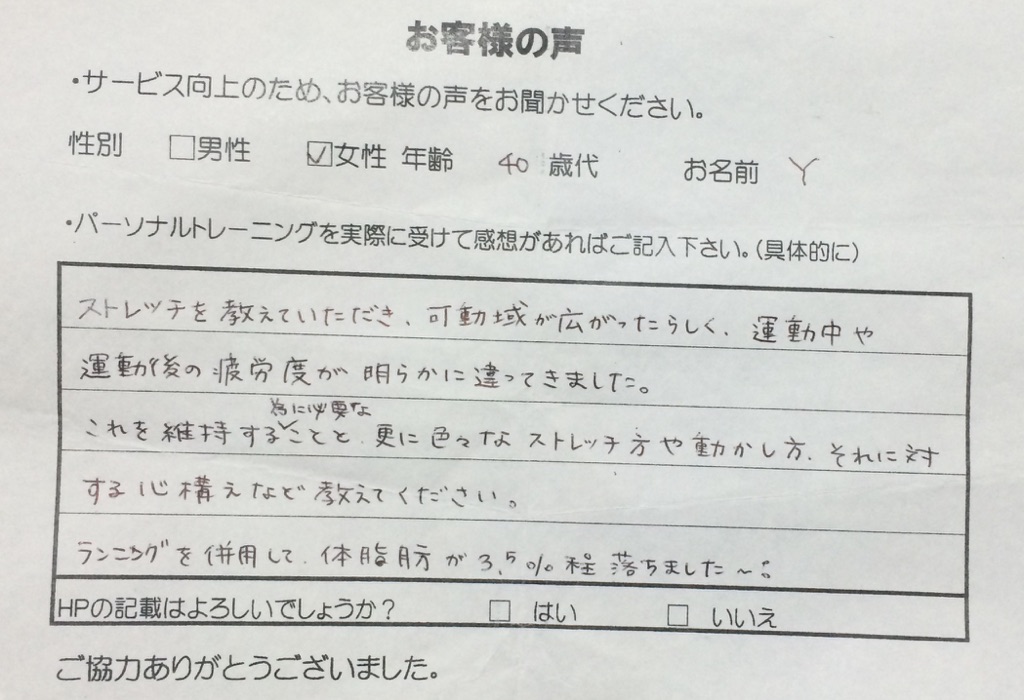 お客様の声
・サービス向上のため、お客様の声をお聞かせください。
性別 □男性 ☑女性 年齢 40 歳代 お名前 Y
・パーソナルトレーニングを実際に受けて感想があればご記入下さい。(具体的に)
ストレッチを教えていただき、可動域が広がったらしく、運動中や
運動後の疲労度が明らかに違ってきました。
為に必要な
これを維持することと、更に色々なストレッチ方や動かし方、それに対
する心構えなど教えてください。
ランニングを併用して、体脂肪が3.5%程落ちました~
HPの記載はよろしいでしょうか? □ はい □ いいえ
ご協力ありがとうございました。